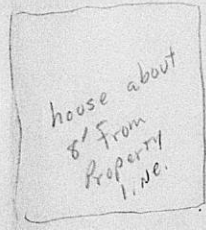 house about
8' From
Property
line.